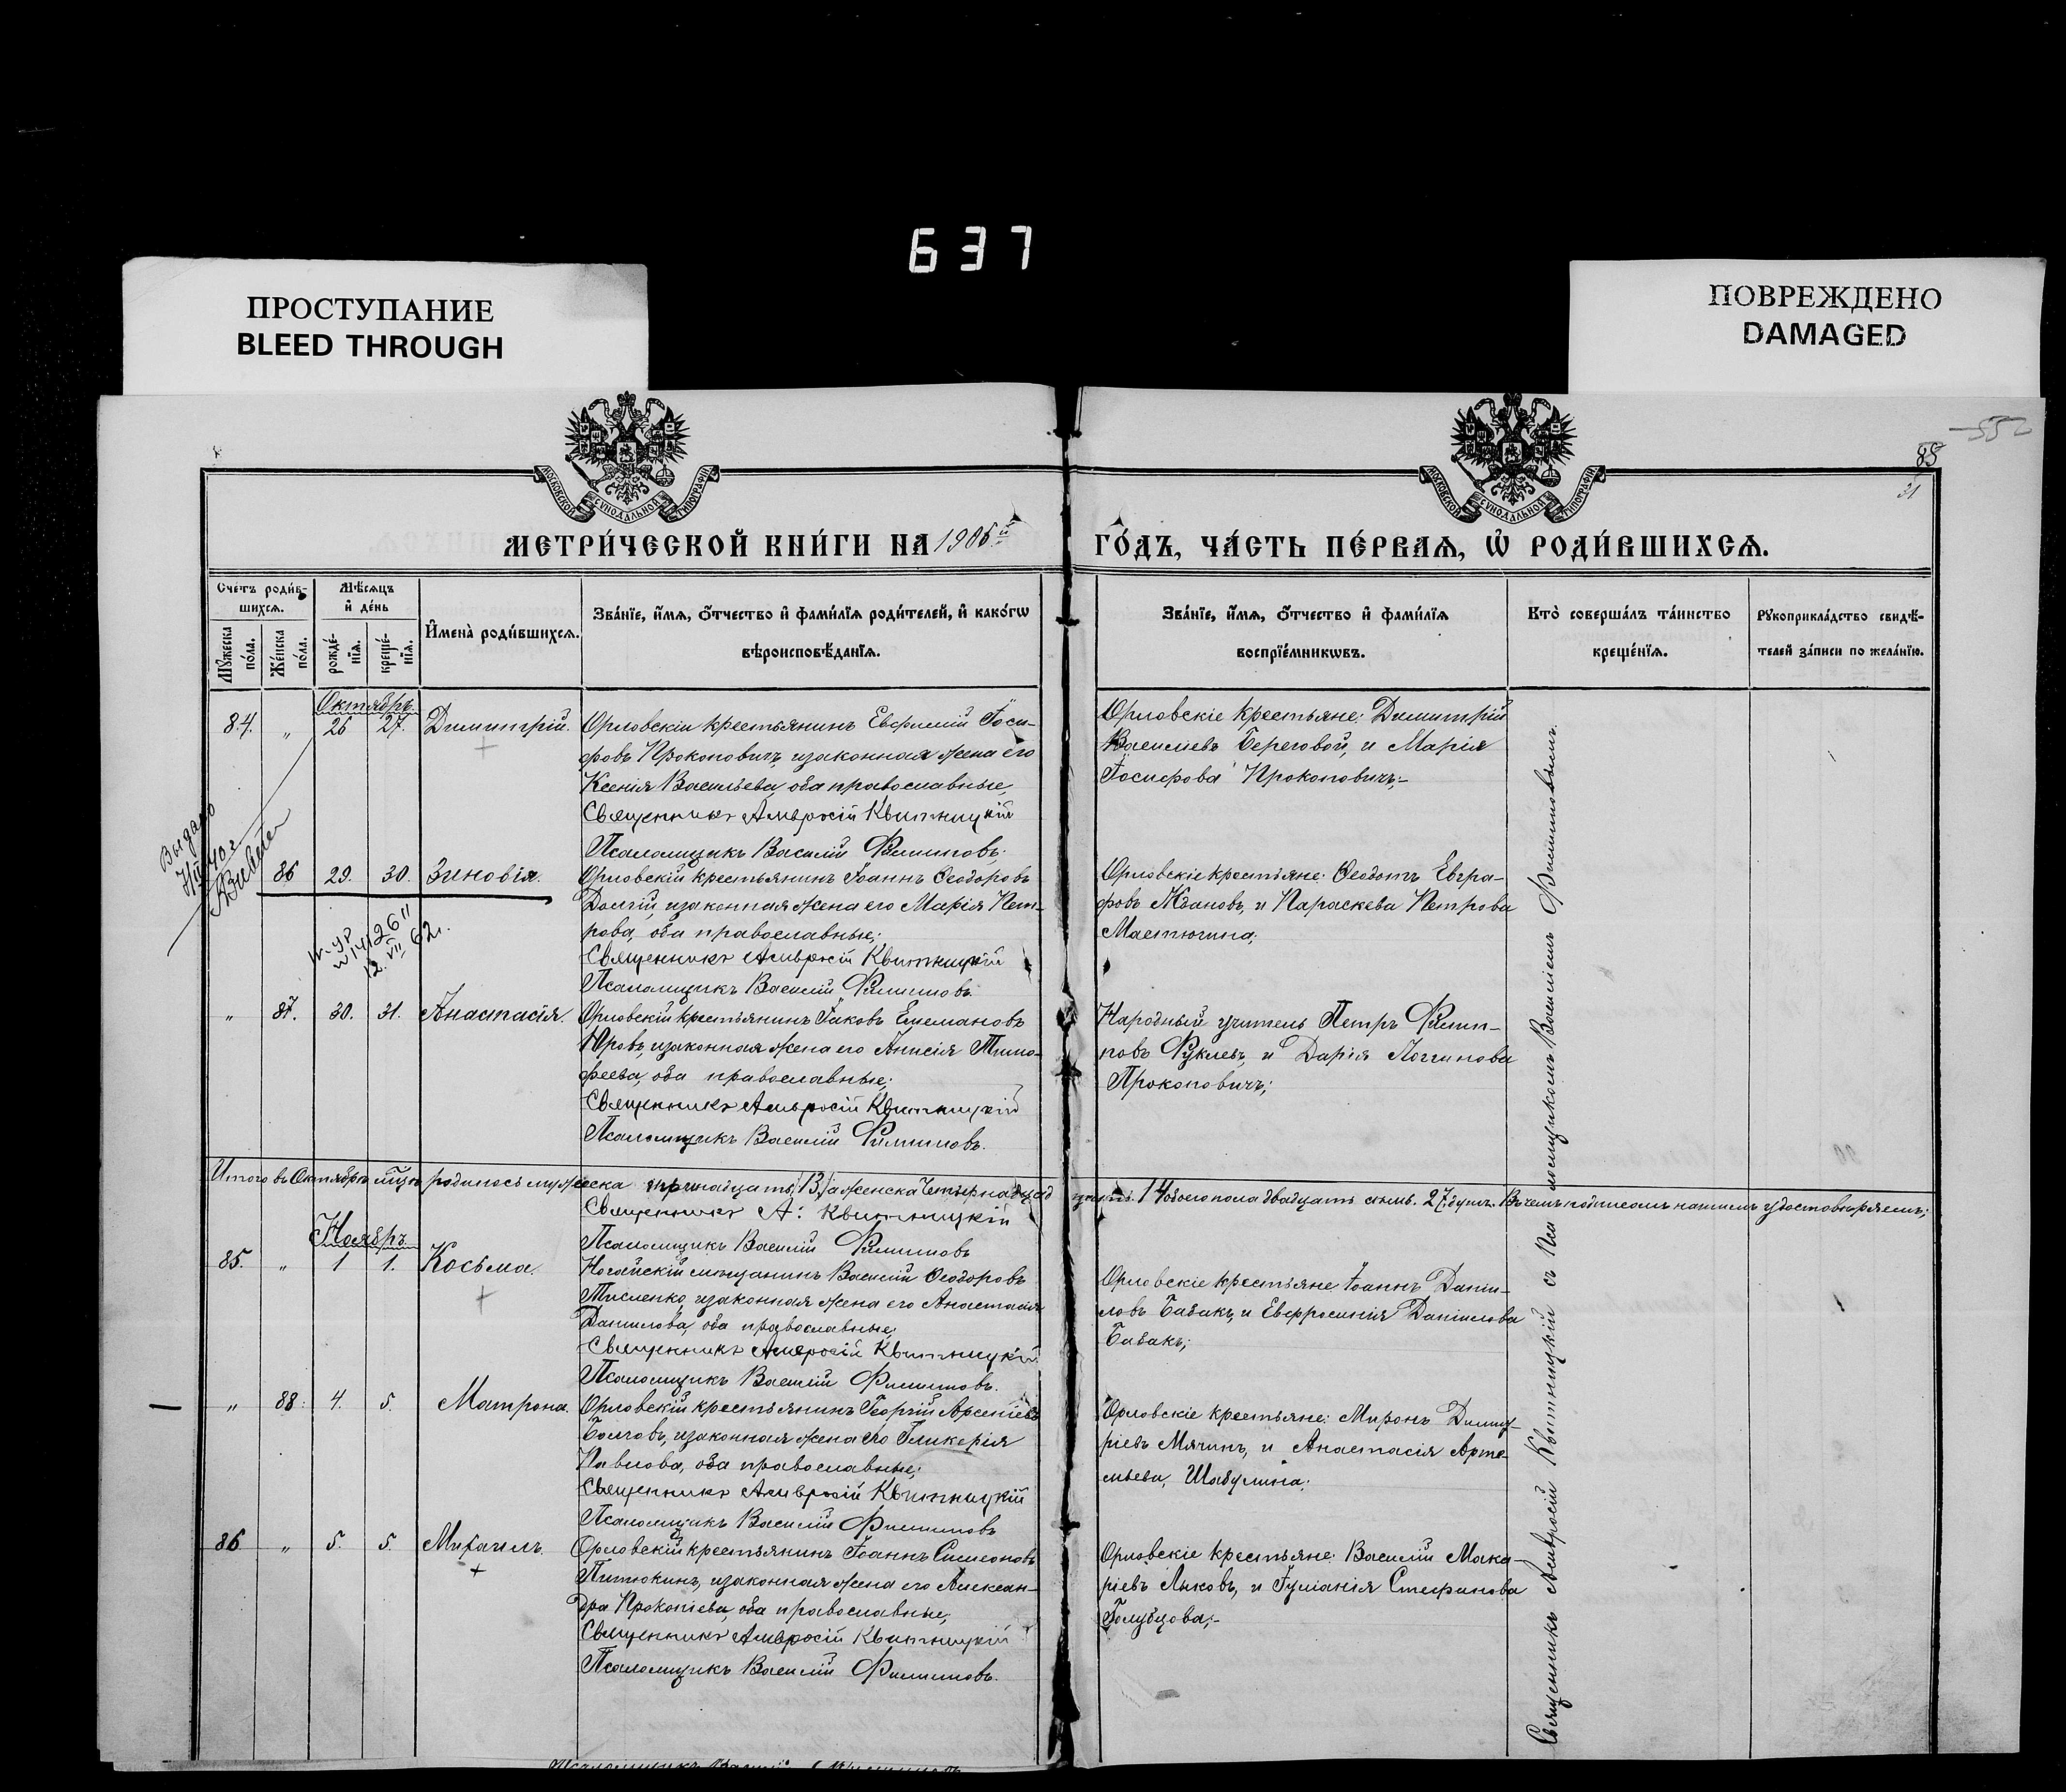 637
ПРОСТУПАНИЕ
BLEED THROUGH
ПОВРЕЖДЕНО
DAMAGED
552
85
31
МОСКОВСКОЙ СѴНОДАЛЬНОЙ ТИПОГРАФІИ
МОСКОВСКОЙ СѴНОДАЛЬНОЙ ТИПОГРАФІИ
МЕТРИ́ЧЕСКОЙ КНИ́ГИ НА 1905й ГО́ДЪ, ЧА́СТЬ ПЕ́РВАѦ, Ѡ РОДИ́ВШИХСѦ.
Сче́тъ роди́в-
шихсѧ.
Мѣ́сѧцъ
и де́нь
Мꙋ́жеска по́ла.
Же́нска по́ла.
рожде́-
нїѧ.
креще́-
нїѧ.
И́мена роди́вшихсѧ.
Зва́нїе, и́мѧ, ѻ҆́тчество и фами́лїѧ роди́телей, и како́гѡ
вѣроисповѣ́данїѧ.
Зва́нїе, и́мѧ, ѻ҆́тчество и фами́лїѧ
воспрїе́мникѡвъ.
Кто̀ соверша́лъ та́инство
креще́нїѧ.
Рꙋкоприкла́дство свидѣ́-
телей за́писи по жела́нїю.
Октябрь.
84. " 26 27. Димитрій.
Орловскій крестьянинъ Евфимій Іоси-
фовъ Прокоповичъ, изаконная жена его
Ксенія Васильева, оба православные,
Священникъ Амвросій Квитницкій
Псаломщикъ Василій Филиповъ.
Орловскіе крестьяне: Димитрій
Васильевъ Береговой, и Марія
Іосифова Прокоповичъ;-
Выдано
86 29. 30. Зиновія.
Орловскій крестьянинъ Іоаннъ Ѳеодоровъ
Долгій, изаконная жена его Марія Пет-
рова, оба православные;
Священникъ Амвросій Квитницкій
Псаломщикъ Василій Филиповъ.
Орловскіе крестьяне: Ѳеодотъ Евгра-
фовъ Жановъ, и Параскева Петрова
Мастюгина;
12. VII 62г.
" 87. 30. 31. Анастасія.
Орловскій крестьянинъ Іаковъ
Юровъ, изаконная жена его Анисія Тимо-
феева, оба православные;
Священникъ Амвросій Квитницкій
Псаломщикъ Василій Филиповъ.
Народный учитель Петръ Фили-
повъ и Дарія Логгинова
Прокоповичъ;
Итого въ Октябрѣ мцѣ родилось мужеска тринадцать, 13, а женска четырнадцать 14 обоего пола двадцать семь. 27. душъ. Въ чемъ подписомъ нашимъ удостовѣряемъ;
Священникъ А: Квитницкій
Псаломщикъ Василій Филиповъ
Ноябрь.
85. " 1 1. Косьма.
Ногайскій мѣщанинъ Василій Ѳеодоровъ
Тисленко, изаконная жена его Анастасія
Данилова, оба православные,
Священникъ Амвросій Квитницкій
Псаломщикъ Василій Филиповъ.
Орловскіе крестьяне Іоаннъ Даніи-
ловъ Бабакъ, и Евфросинія Даніилова
Бабакъ;
" 88. 4. 5. Матрона.
Орловскій крестьянинъ Георгій Арсеніевъ
Болговъ, изаконная жена его Гликерія
Павлова, оба православные;
Священникъ Амвросій Квитницкій
Псаломщикъ Василій Филиповъ
Орловскіе крестьяне: Миронъ Димит-
ріевъ Мячинъ, и Анастасія Арте-
мьева, Шабунина;
86 " 5. 5. Михаилъ.
Орловскій крестьянинъ Іоаннъ Симеоновъ
Питюкинъ, изаконная жена его Алексан-
дра Прокопіева, оба православные;
Священникъ Амвросій Квитницкій
Псаломщикъ Василій Филиповъ.
Орловскіе крестьяне: Василій Мака-
ріевъ Лыковъ, и Іуліанія Стефанова
Голубцова;-
Священникъ Амвросій Квитницкій съ псаломщикомъ Василіемъ Филиповымъ.
Псаломщикъ Василій Филиповъ